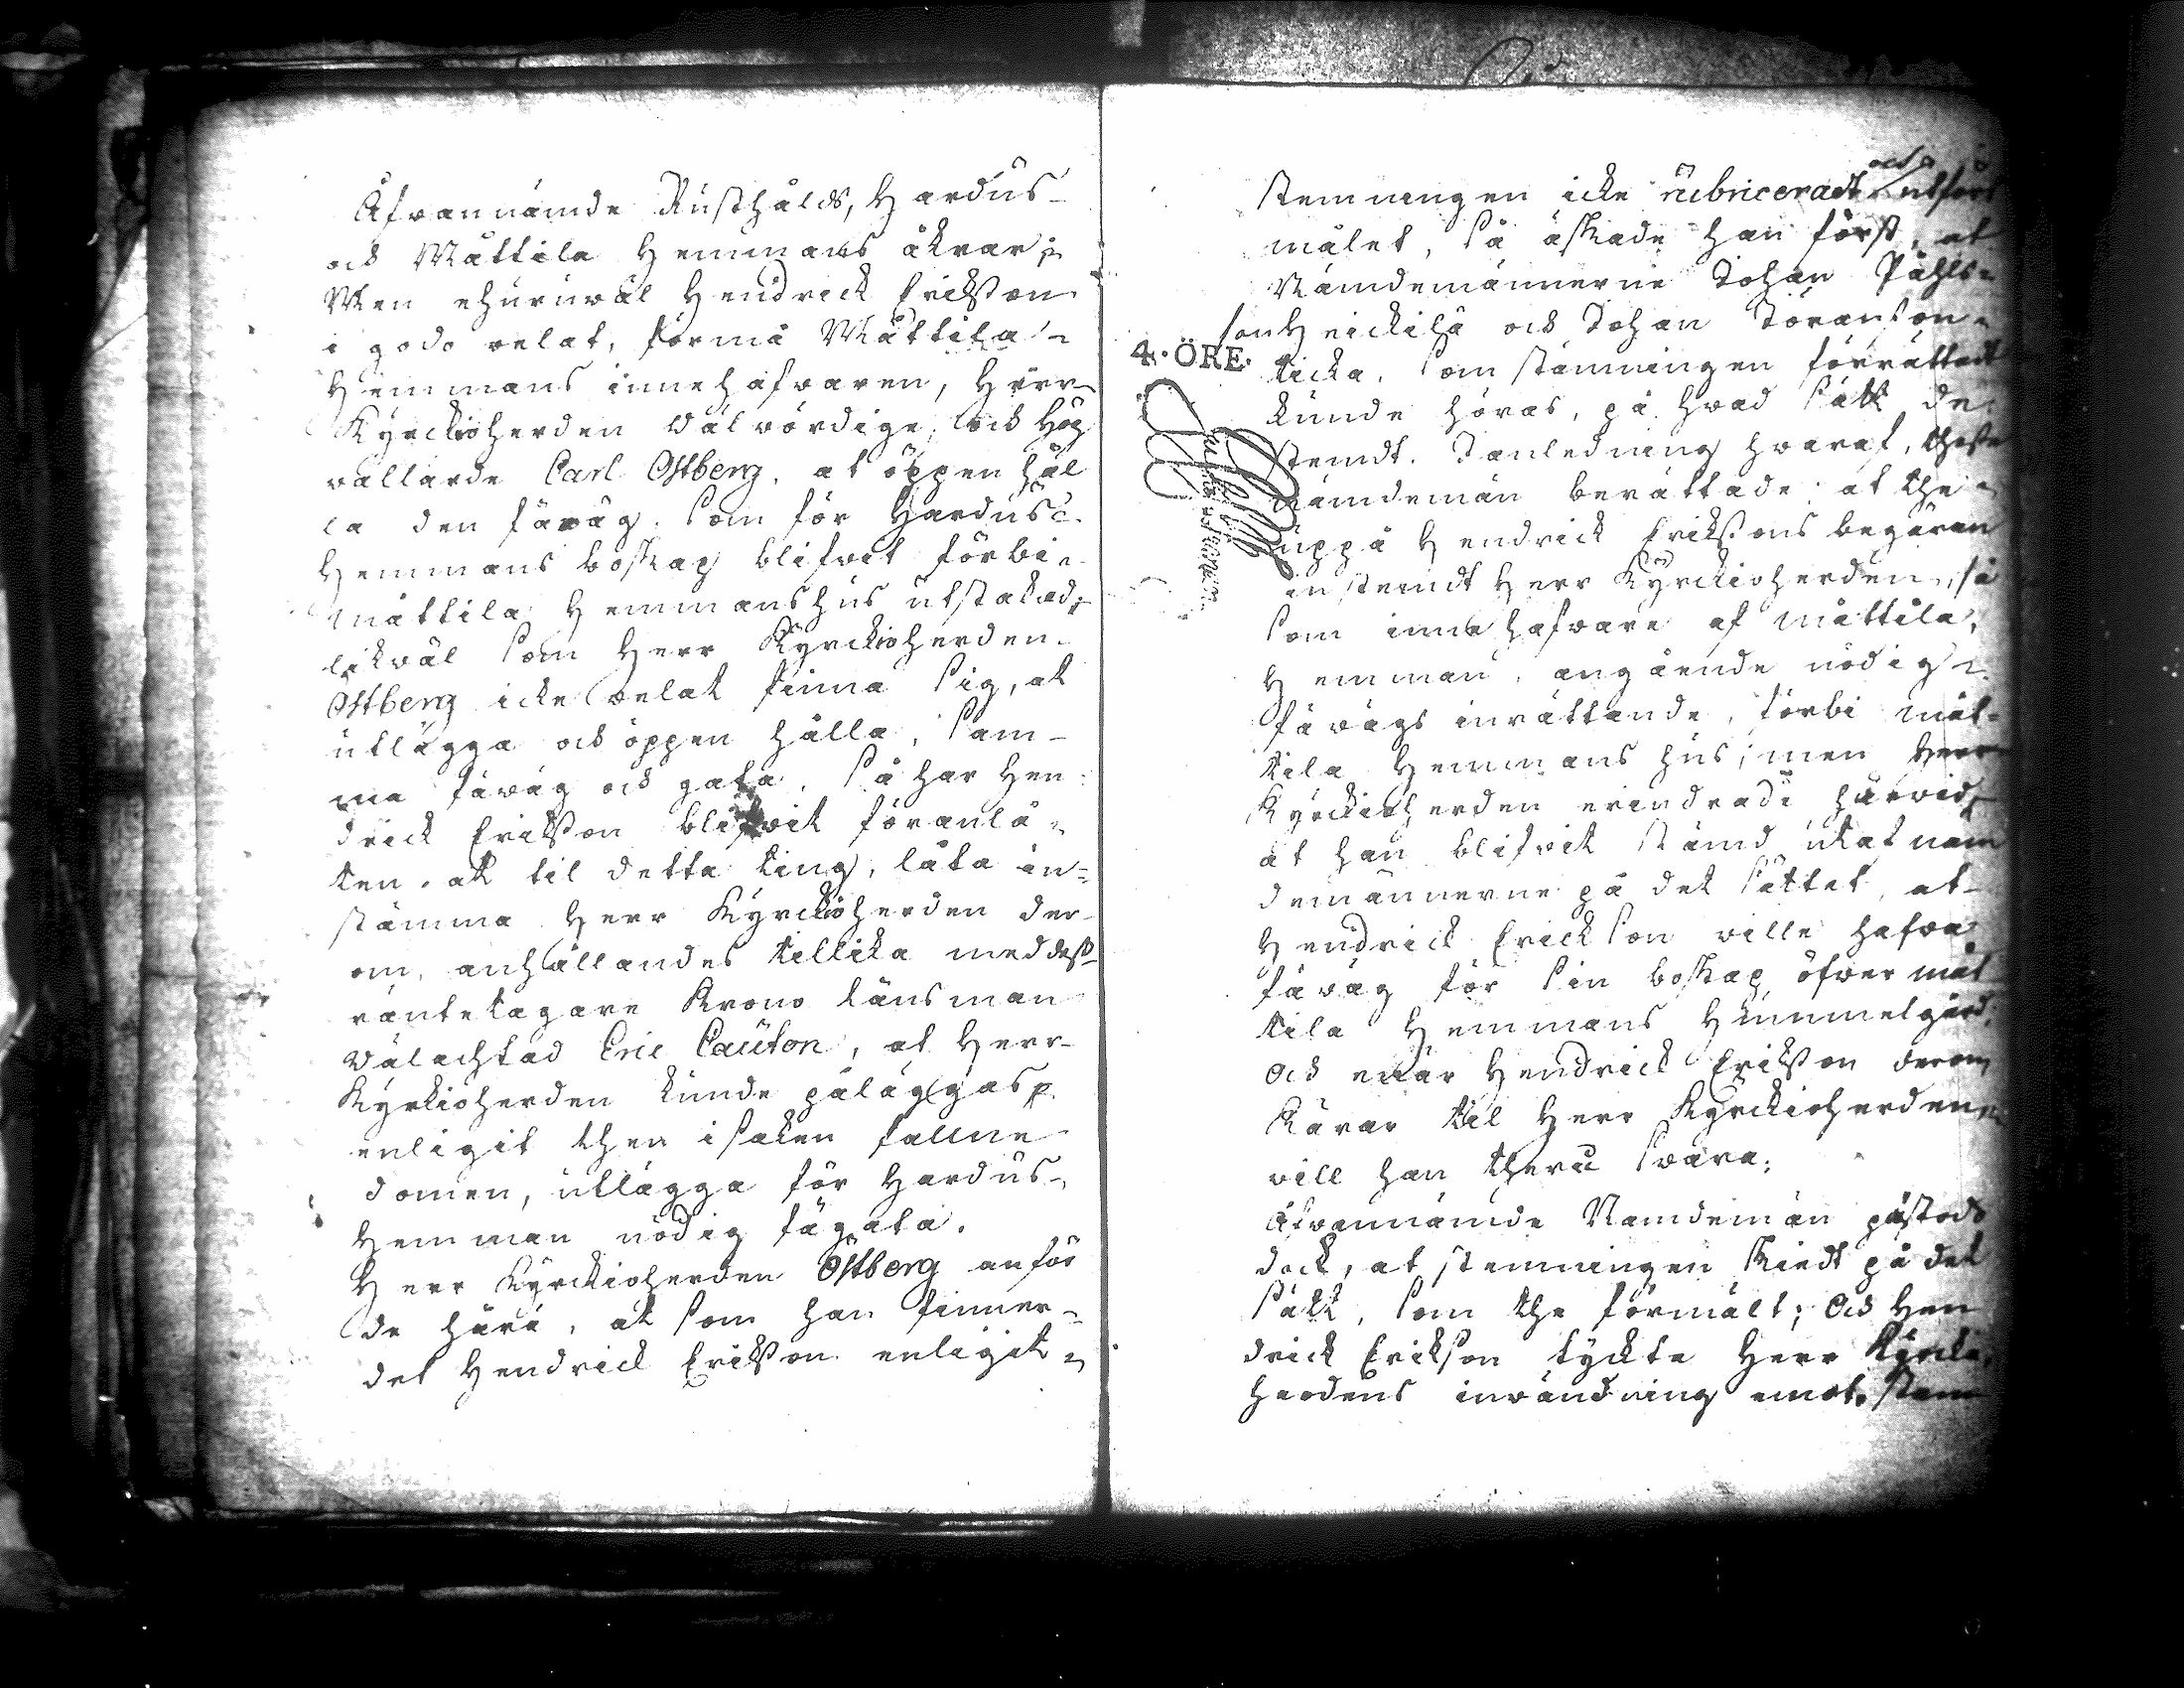 Åfvannämde Rusthålds, Hardus-
och Mattila Hemmans åkrar;
Men ehuruwäl Hendrick Erikßon
i godo velat, förmå Mattila
Hemmans innehafvaren, Herr
Kyrckioherden Välvördige, och Hög
vällärde Carl Ostberg, at öppen hål
la den fäväg, som för Hardus
Hemmans boskap blifvit förbi
Mattila Hemmans hus utstakad,
likväl som Herr Kyrckioherden
Ostberg icke velat finna sig, at
utlägga och öppen hålla, sam-
ma fäväg och gata, så har Hen-
drick Erikßon blifvit föranlå-
ten, at til detta ting, låta in-
stämma Herr Kyrckioherden der-
om, anhållandes tillika med deß
räntetagare Krono länsman
Välachtad Eric Cauton, at Herr
Kyrkioherden kunde påläggas
enligit then i saken fallne
domen, utlägga för Hardus
Hemman nödig fägata.
Herr Kyrckioherden Ostberg anför
de härå, at som han finner
det Hendrick Erikßon enligit
stemningen icke rubricerat och utfört
målet, så äskade han först, at
Nämdemännerne Johan Påhls-
son Heickilä och Johan
4. ÖRE.
ticka, som stämningen förrättadt
kunde höras, på hvad sätt de
stemdt. I anledning hvaraf, theße
Nämdemän berättade, at the
uppå Hendrick Erikßons begäran
instemdt Herr Kyrckioherden, så
som innehafvare af Mattila
Hemman, angående nödig
fävägs inrättande, förbi Mat-
tila Hemmans hus; men Herr
Kyrckioherden erindrade härvid,
at han blifvit stämd utaf näm
demännerne på det sättet, at
Hendrick Erickson ville hafva
fäväg för sin boskap öfver Mat
tila Hemmans Hummelgård,
och enär Hendrick Erikßon derom
kärar til Herr Kyrckioherden,
vill han therå svara;
Åfvannämde Nämdemän påstodo
dock, at stemningen skiedt på det
sätt, som the förmält; och Hen
drick Erikson tyckte Herr Kyrckio
herdens invändning emot stem